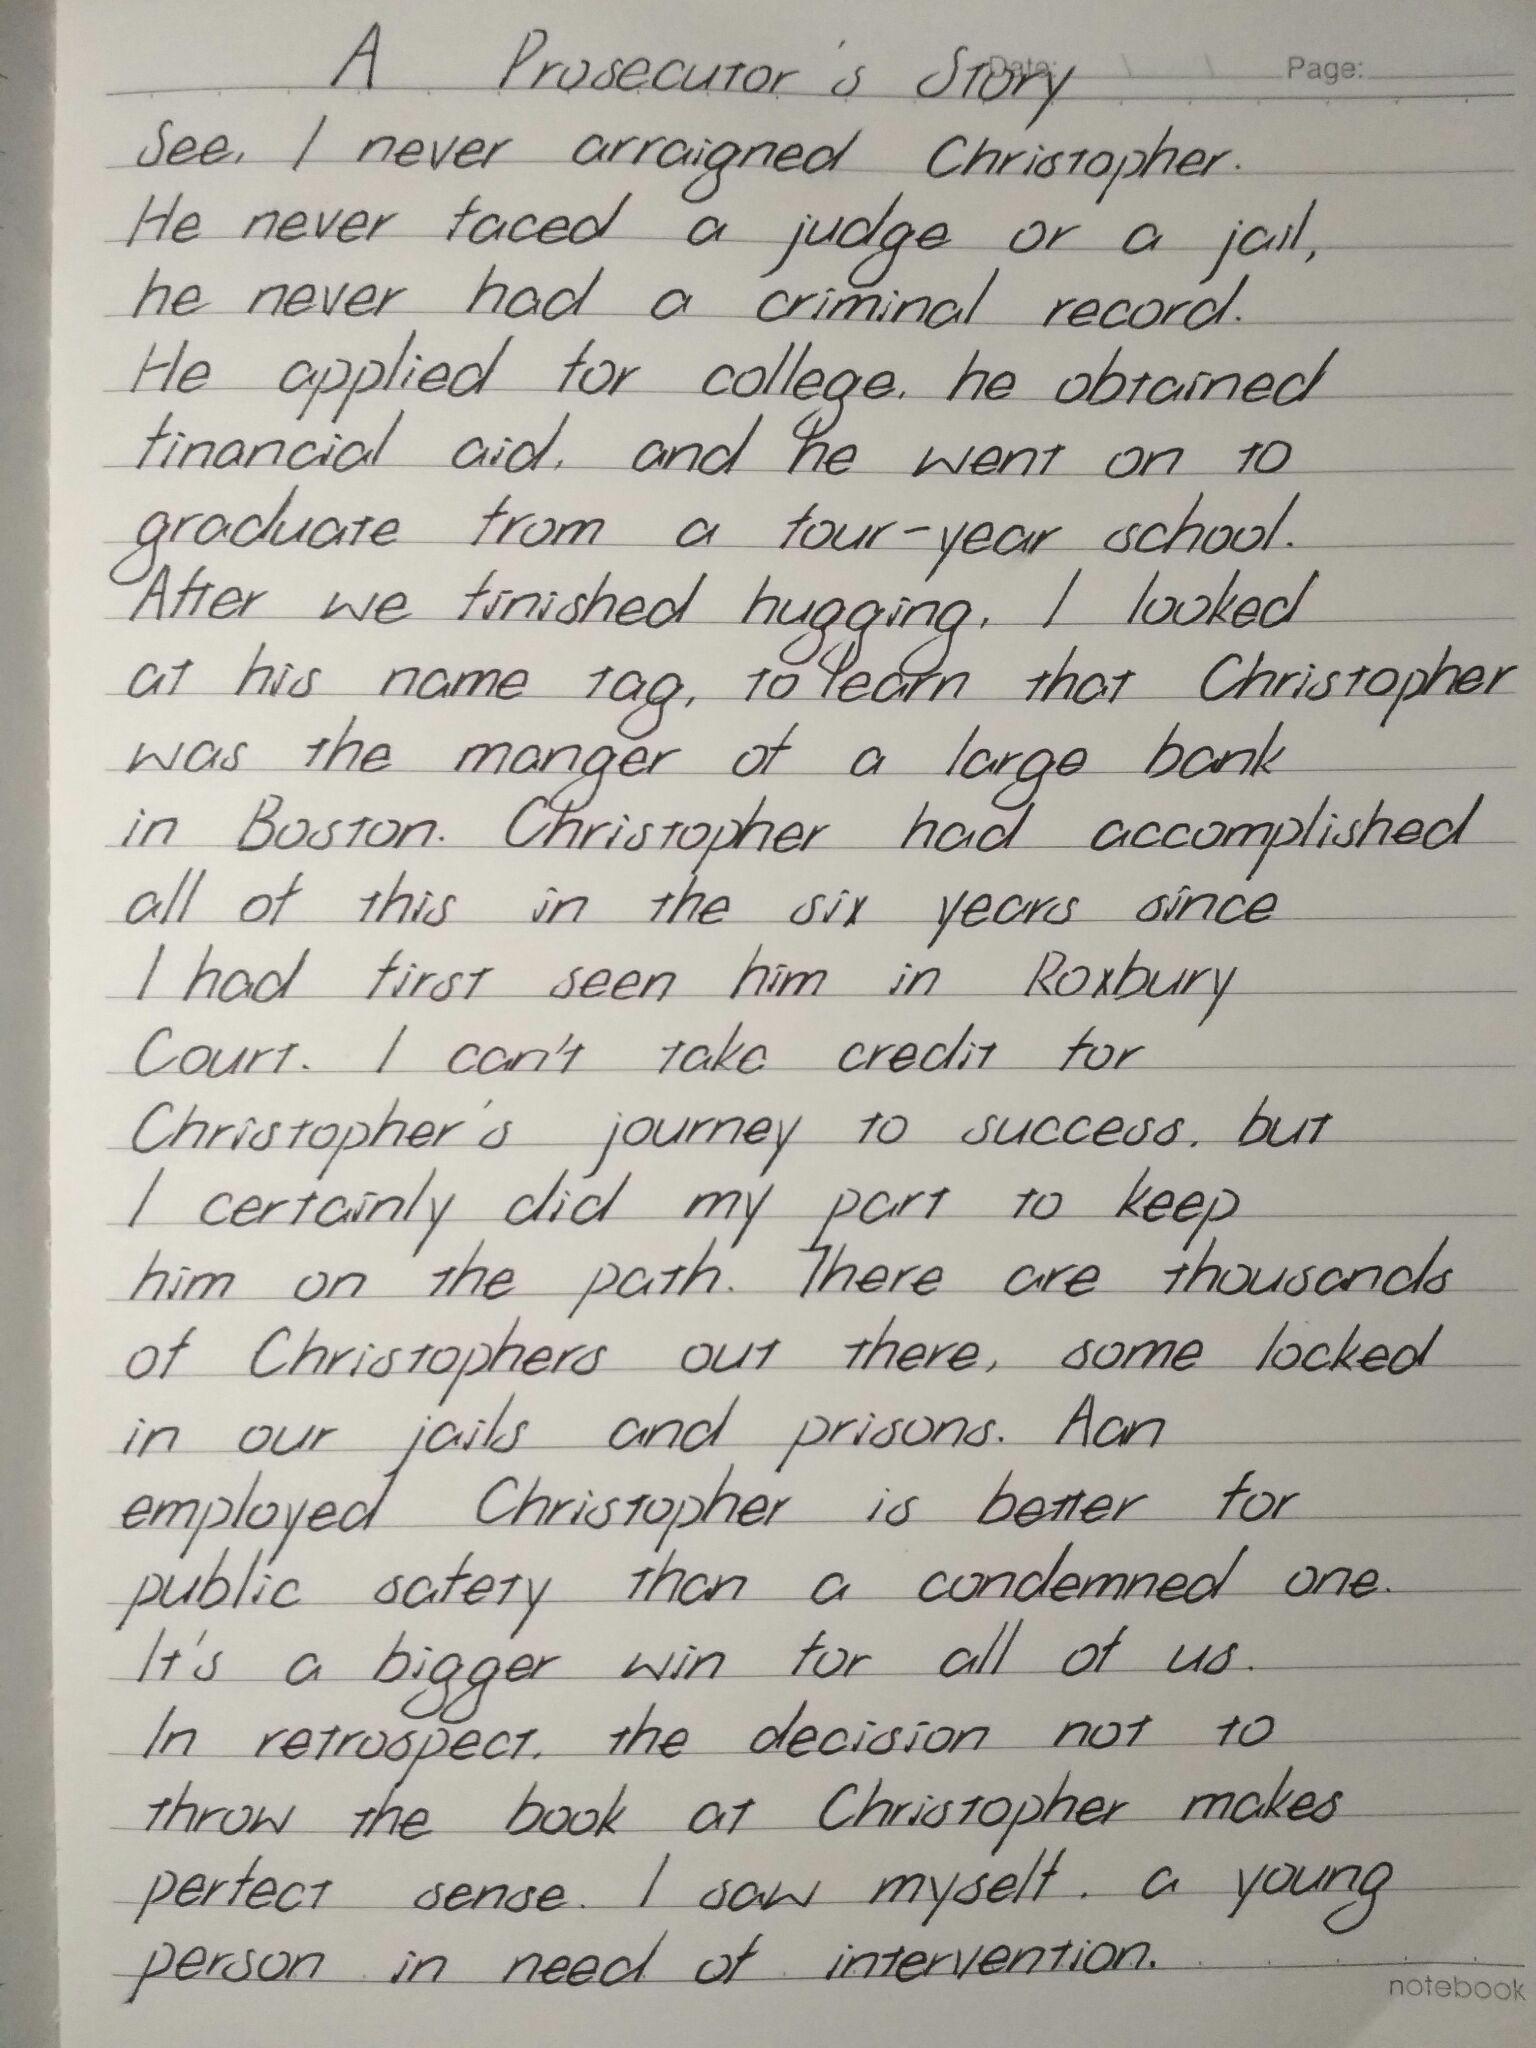 A Prosecutor's Story
Date: Page:
See, I never arraigned Christopher.
He never faced a judge or a jail,
he never had a criminal record.
He applied for college, he obtained
financial aid, and he went on to
graduate from a four-year school.
After we finished hugging, I looked
at his name tag, to learn that Christopher
was the manger of a large bank
in Boston. Christopher had accomplished
all of this in the six years since
I had first seen him in Roxbury
Court. I can't take credit for
Christopher's journey to success, but
I certainly did my part to keep
him on the path. There are thousands
of Christophers out there, some locked
in our jails and prisons. Aan
employed Christopher is better for
public safety than a condemned one.
It's a bigger win for all of us.
In retrospect, the decision not to
throw the book at Christopher makes
perfect sense. I saw myself, a young
person in need of intervention.
notebook